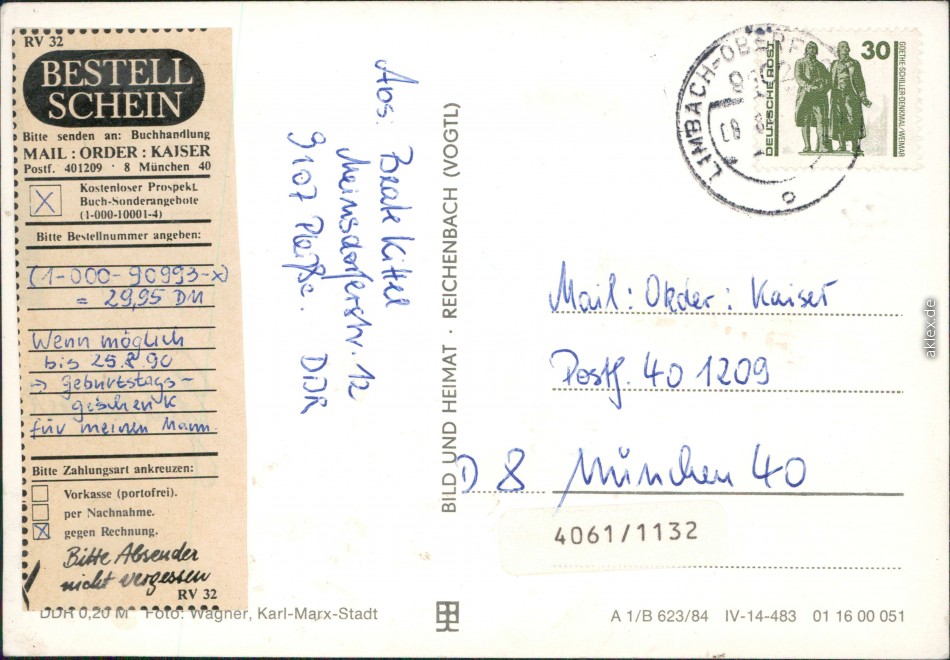 RV 32
BESTELL
SCHEIN
Bitte senden an: Buchhandlung
MAIL : ORDER : KAISER
Postf. 401209 · 8 München 40
Kostenloser Prospekt
Buch-Sonderangebote
(1-000-10001-4)
Bitte Bestellnummer angeben:
(1-000-90993-x)
= 29,95 DM
Wenn möglich
bis 25.8.90
→ Geburtstags-
geschenk
für meinen Mann.
Bitte Zahlungsart ankreuzen:
Vorkasse (portofrei).
per Nachnahme.
gegen Rechnung.
Bitte Absender
nicht vergessen
RV 32
DDR 0,20 M Foto: Wagner, Karl-Marx-Stadt
Abs: Beate Kittel
Meinsdorferstr. 12
9107 Pleißa.
DDR
BILD UND HEIMAT · REICHENBACH (VOGTL)
LIMBACH-OBERF
DEUTSCHE POST
30
GOETHE-SCHILLER-DENKMAL/WEIMAR
Mail: Order: Kaiser
Postf. 40 1209
D 8 München 40
4061/1132
A 1/B 623/84 IV-14-483 01 16 00 051
aklex.de